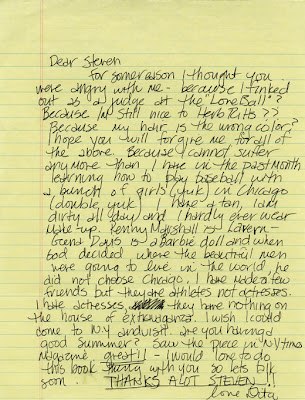 Dear Steven
for some reason I thought you
were angry with me - because I finked
out as a judge at the "Love Ball"?
Because I'm still nice to Herb Ritts??
Because my hair is the wrong color?
I hope you will forgive me for all of
the above. Because I cannot suffer
any more than I have in the past month
learning how to play baseball with
a bunch of girls (yuk) in Chicago
(double yuk) I have a tan, I am
dirty all day and I hardly ever wear
make-up. Penny Marshall is Lavern -
Geena Davis is a Barbie doll and when
God decided where the beautiful men
were going to live in the world, he
did not choose Chicago. I have made a few
friends but they are athletes not actresses.
I hate actresses, they have nothing on
the house of extravaganza. I wish I could
come to N.Y. are you having a
good summer? Saw the piece in NY times
Magazine, great!! - I would love to do
this book with you so lets talk
soon. THANKS A LOT STEVEN!!
love Dita